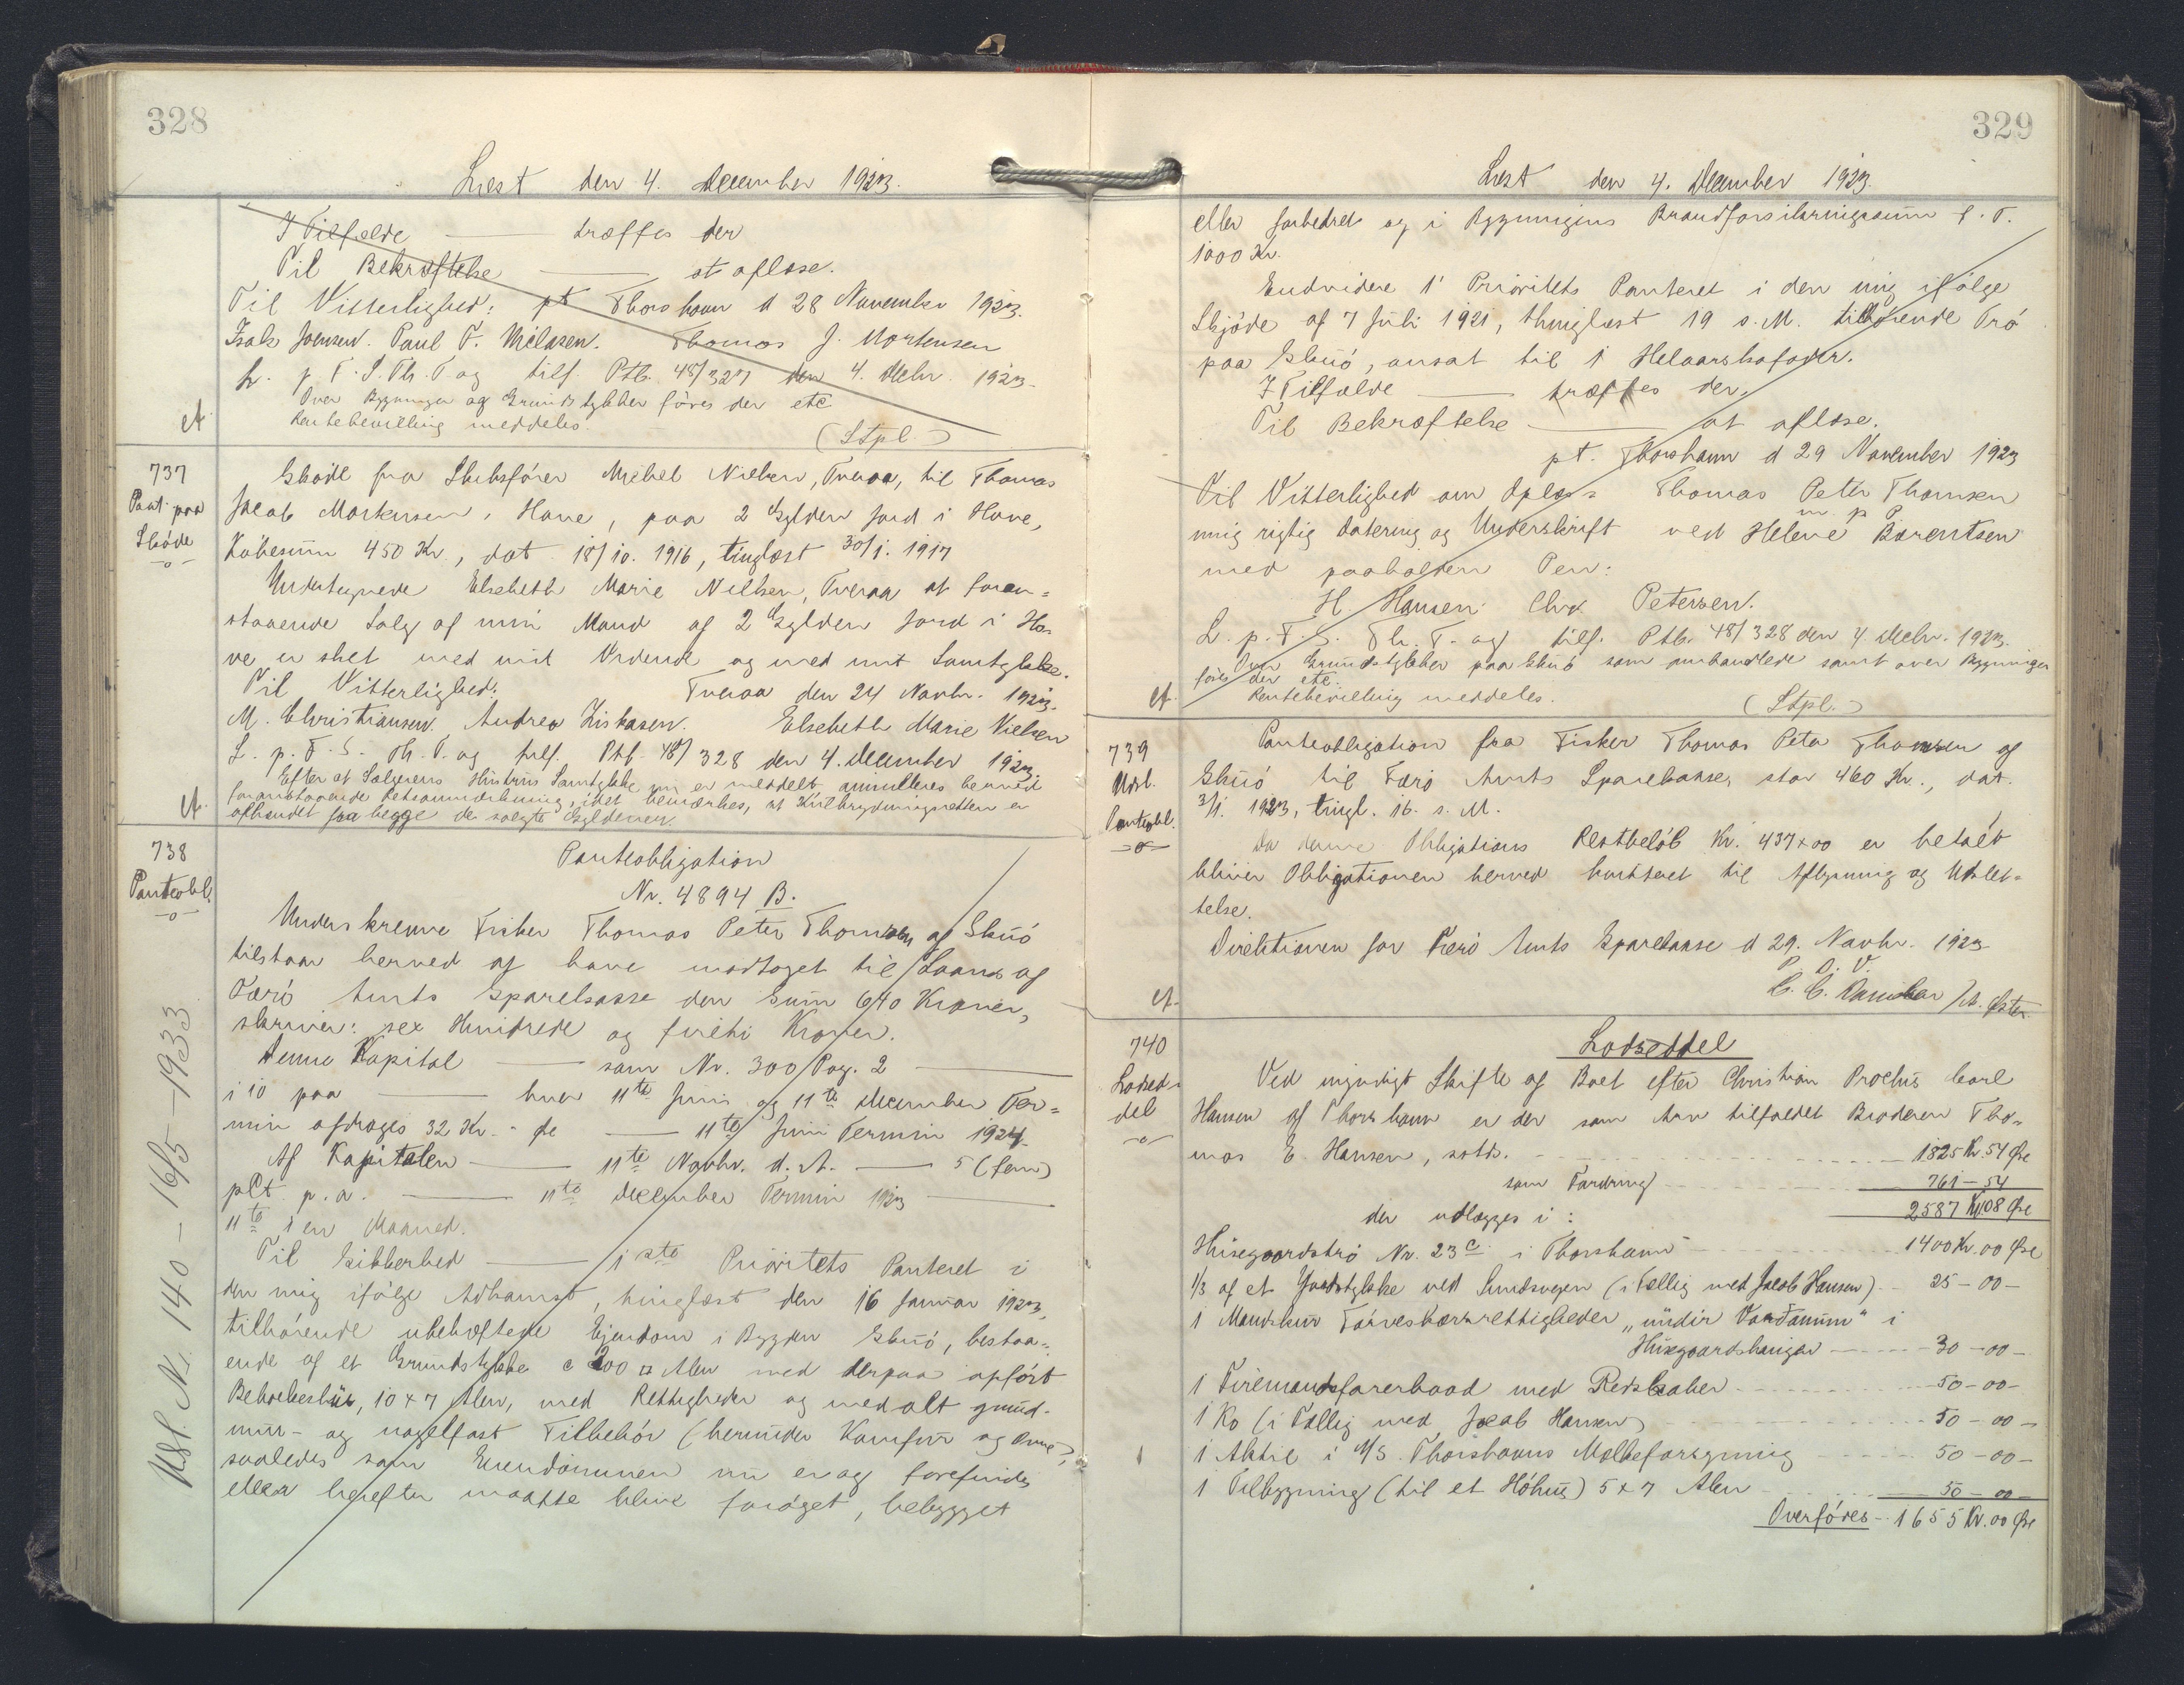 328
Læst den 4. December 1923.
I Tilfælde — træffes der
Til Bekræftelse — at aflæse.
Til Vitterlighed: pt Thorshavn d 28 November 1923.
Isak Joensen. Paul F. Nielasen. Thomas J. Mortensen
L. p. F. S. Th. T. og tilf. Ptb. 48/327 den 4. Decbr. 1923.
Over Bygninger og Grundstykker føres der etc
Rentebevilling meddeles.
(Stpl.)
737
Paat. paa
Skøde
Skøde fra Skibsfører Michel Nielsen, Tveraa, til Thomas
Jacob Mortensen, Hove, paa 2 Gylden Jord i Hove,
Købesum 450 Kr., dat. 18/10. 1916, tinglæst 30/1. 1917
Undertegnede Elsebeth Marie Nielsen, Tveraa at foran=
staaende Salg af min Mand af 2 Gylden Jord i Ho-
ve er sket med mit Vidende og med mit Samtykke.
Til Vitterlighed: Tveraa den 24 Novbr. 1923.
M. Christiansen. Andrea Ziskasen. Elsebeth Marie Nielsen
L. p. F. S. Th. T. og tilf. Ptb. 48/328 den 4. December 1923
Efter at Sælgerens Hustrus Samtykke nu er meddelt annulleres herved
foranstaaende Retsanmærkning, idet bemærkes, at Kulbrydningsretten er
afhændet fra begge de solgte Gyldener.
738
Panteobl.
Panteobligation
Nr. 4894 B.
Underskrevne Fisker Thomas Peter Thomsen af Skuø
tilstaar herved at have modtaget til Laans af
Færø Amts Sparekasse den Sum 640 Kroner,
skriver: sex Hundrede og fireti Kroner.
Denne Kapital — som Nr. 300 Pag. 2 —
i 10 paa — hver 11te Juni og 11te December Ter=
min afdrages 32 Kr. - Øre — 11te Juni Termin 1924
Af Kapitalen — 11te Novbr. d. A. — 5 (fem)
pCt. p. a. — 11te December Termin 1923 —
11te i en Maaned.
Til Sikkerhed — 1ste Prioritets Panteret i
den mig ifølge Adkomst, tinglæst den 16 Januar 1923,
tilhørende ubehæftede Ejendom i Bygden Skuø, bestaa=
ende af et Grundstykke c 200 □ Alen med derpaa opført
Beboelseshus, 10 x 7 Alen, med Rettigheder og med alt grund-
mur- og nagelfast Tilbehør (herunder Komfur og Ovne),
saaledes som Ejendommen nu er og forefindes
eller herefter maatte blive forøget, bebygget
Udsl. N. 140 - 16/5 - 1933
329
Læst den 4. December 1923.
eller forbedret og i Bygningens Brandforsikringssum f. T.
1000 Kr.
Endvidere 1' Prioritets Panteret i den mig ifølge
Skjøde af 7 Juli 1921, thinglæst 19 s. M. tilhørende Trø
paa Skuø, ansat til 1 Helaarskofoder.
I Tilfælde — træffes der.
Til Bekræftelse — at aflæse.
pt. Thorshavn d 29 November 1923
Til Vitterlighed om Oplæs= Thomas Peter Thomsen
m p P
ning rigtig Datering og Underskrift ved Helene Barentsen
med paaholden Pen:
H. Hansen Chr. Petersen.
L. p. F. S. Th. T. og tilf. Ptb. 48/328 den 4. Decbr. 1923.
Over Grundstykker paa Skuø som omhandlede samt over Bygninger
føres der etc.
Rentebevilling meddeles. (Stpl.)
739
Udsl.
Panteobl.
Panteobligation fra Fisker Thomas Peter Thomsen af
Skuø til Færø Amts Sparekasse, stor 460 Kr., dat.
3/1. 1923, tingl. 16. s. M.
Da denne Obligations Restbeløb Kr. 437 x 00 er betalt
bliver Obligationen herved kvitteret til Aflysning og Udslet=
telse.
Direktionen for Færø Amts Sparekasse d 29. Novbr. 1923
P. D. V.
C. C. Danielsen / A. Øster
740
Lodsed=
del
Lodseddel
Ved myndigt Skifte af Boet efter Christian Proclus Carl
Hansen af Thorshavn er der som Arv tilfaldet Broderen Tho=
mas E. Hansen, sstds. 1825 Kr. 54 Øre
som Fordring 761 - 54
der udlægges i: 2587 Kr. 08 Øre
Husegaardstrø Nr. 23c i Thorshavn 1400 Kr. 00 Øre
1/3 af et Jordstykke ved Sundsvegen (i Fællig med Jacob Hansen) 25 - 00 -
1 Mandskur Tørveskærsrettigheder "undir Vardanum" i
Husegaardshaugar 30 - 00 -
1 Firemandsfarerbaad med Redskaber 50 - 00 -
1 Ko (i Fællig med Jacob Hansen) 50 - 00 -
1 Aktie i A/S. Thorshavns Mælkeforsyning 50 - 00 -
1 Tilbygning (til et Høhus) 5 x 7 Alen 50 - 00 -
Overføres - 1655 Kr. 00 Øre